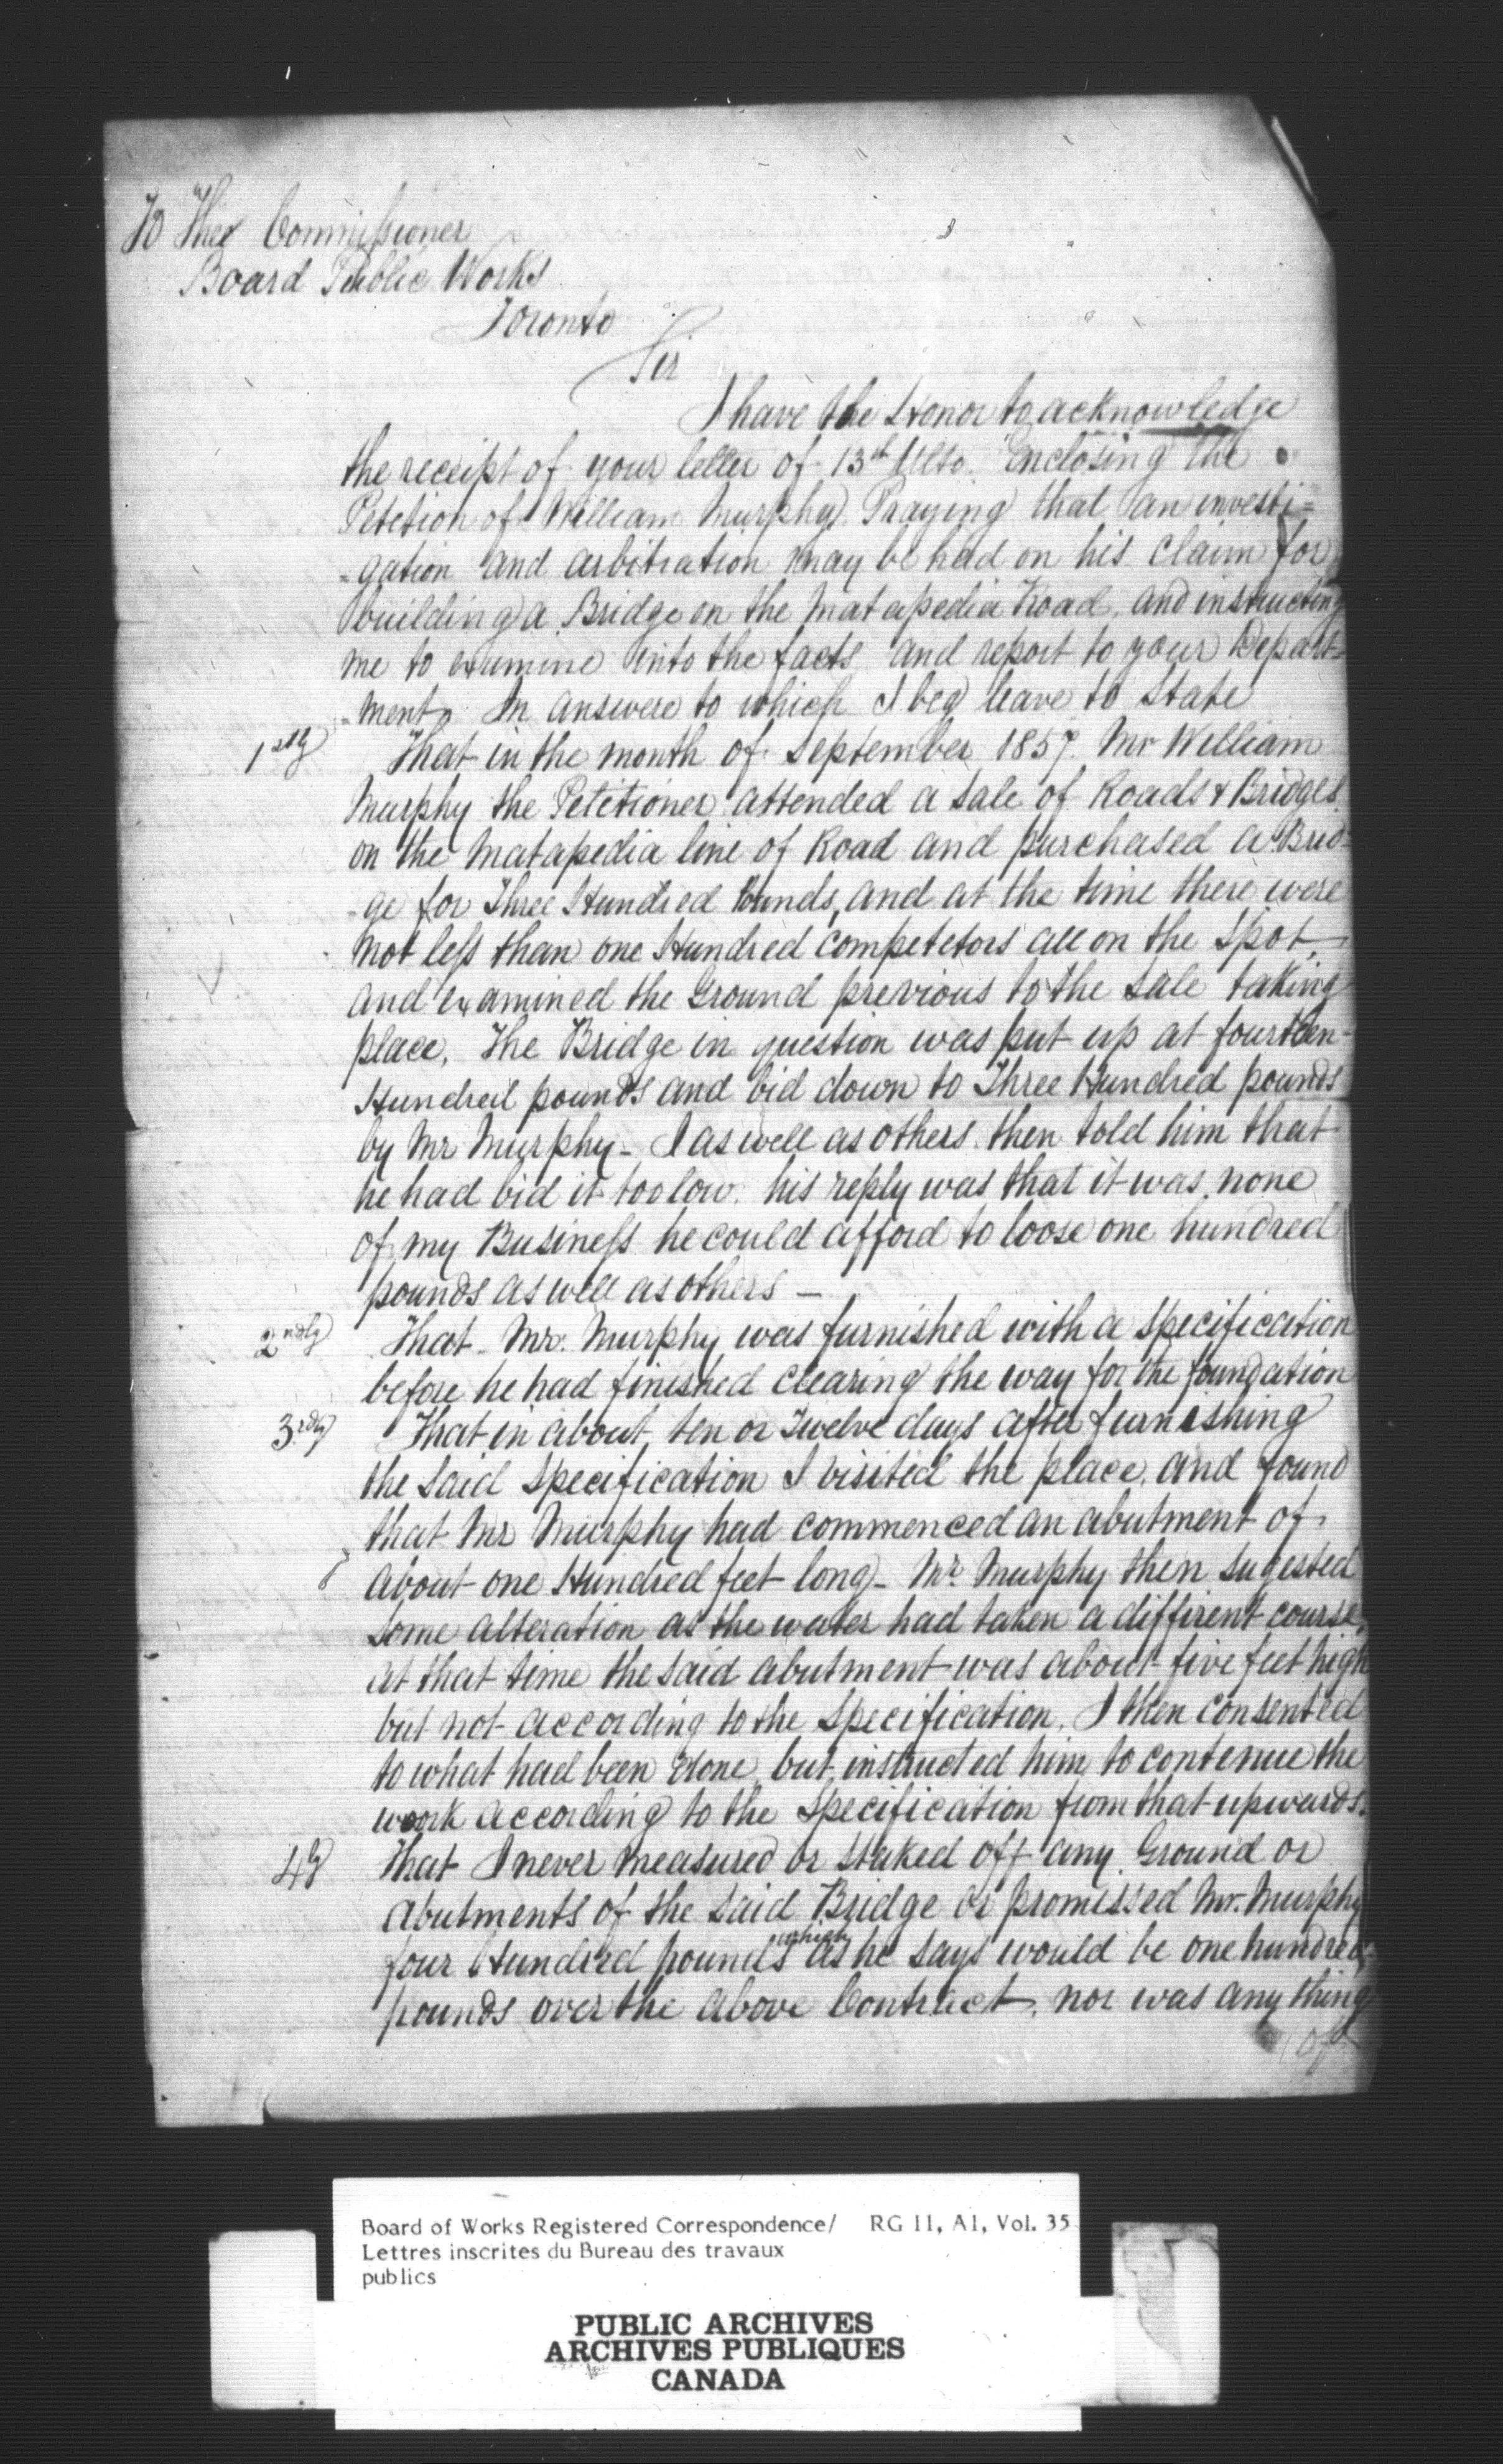 To The Commissioner
Board Public Works
Toronto
Sir
I have the Honor to acknowledge
the receipt of your letter of 13th Ulto. Enclosing the
Petetion of William Murphy Praying that an investi=
=gation and arbitration may be had on his claim for
building a Bridge on the Matapedia Road, and instructing
me to examine into the facts and report to your Depart=
=ment, In answere to which I beg leave to State
1stly That in the month of September 1857. Mr William
Murphy the Petetioner attended a sale of Roads & Bridges
on the Matapedia line of Road and purchased a Brid=
=ge for Three Hundred Pounds, and at the time there were
not less than one Hundred competetors all on the spot,
and examined the Ground previous to the sale taking
place, The Bridge in question was put up at fourteen-
Hundred pounds and bid down to Three Hundred pounds
by Mr Murphy - I as well as others then told him that
he had bid it too low. his reply was that it was none
of my Business he could afford to loose one hundred
pounds as well as others —
2ndly That Mr. Murphy was furnished with a specification
before he had finished clearing the way for the foundation
3rdly That in about ten or Twelve days after furnishing
the said specification I visited the place, and found
that Mr Murphy had commenced an abutment of
about one Hundred feet long - Mr. Murphy then sugested
some alteration as the water had taken a diffirent course,
at that time the said abutment was about five feet high
but not according to the specification, I then consented
to what had been done, but instructed him to contenue the
work according to the specification from that upwards.
4ly That I never measured or staked off any Ground or
abutments of the said Bridge or promissed Mr. Murphy
four Hundred pounds which as he says would be one hundred
pounds over the above Contract, nor was any thing
of
Board of Works Registered Correspondence/ RG 11, A1, Vol. 35
Lettres inscrites du Bureau des travaux
publics
PUBLIC ARCHIVES
ARCHIVES PUBLIQUES
CANADA